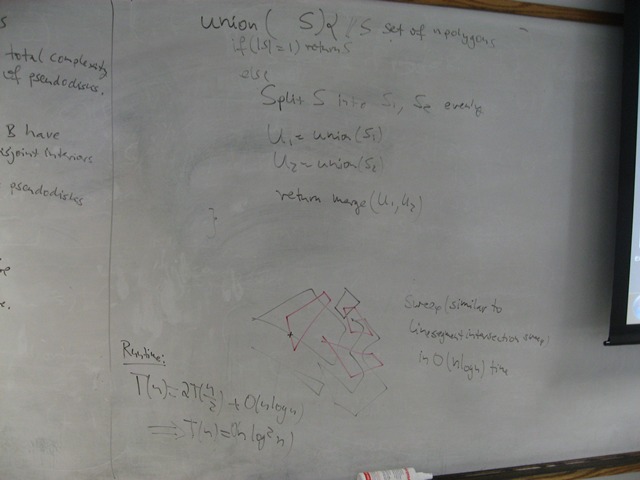 s
total complexity
of pseudodiscs.
B have
sjoint interiors
pseudodisks
e.
union( S){ // S set of n polygons
if(|S|=1) return S
else
Split S into S1, S2 evenly
U1 = union(S1)
U2 = union(S2)
return merge(U1, U2)
}
Sweep (similar to
line segment intersection sweep)
in O(n log n) time
Runtime:
T(n) = 2T(n/2) + O(n log n)
⟹ T(n) = O(n log² n)